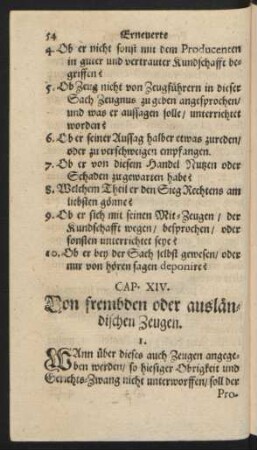 54 Erneuerte
4. Ob er nicht sonst mit dem Producenten
in guter und vertrauter Kundschafft be-
griffen?
5. Ob Zeug nicht von Zeugführern in dieser
Sach Zeugnus zu geben angesprochen/
und was er aussagen solle/ unterrichtet
worden?
6. Ob er seiner Aussag halber etwas zureden/
oder zu verschweigen empfangen.
7. Ob er von diesem Handel Nutzen oder
Schaden zugewarten habe?
8. Welchem Theil er den Sieg Rechtens am
liebsten gönne?
9. Ob er sich mit seinen Mit-Zeugen/ der
Kundschafft wegen/ besprochen/ oder
sonsten unterrichtet seye?
10. Ob er bey der Sach selbst gewesen/ oder
nur von hören sagen deponire?
CAP. XIV.
Von frembden oder auslän-
dischen Zeugen.
1.
WAnn über dieses auch Zeugen angege-
ben werden/ so hiesiger Obrigkeit und
Gerichts-Zwang nicht unterworffen/ soll der
Pro-